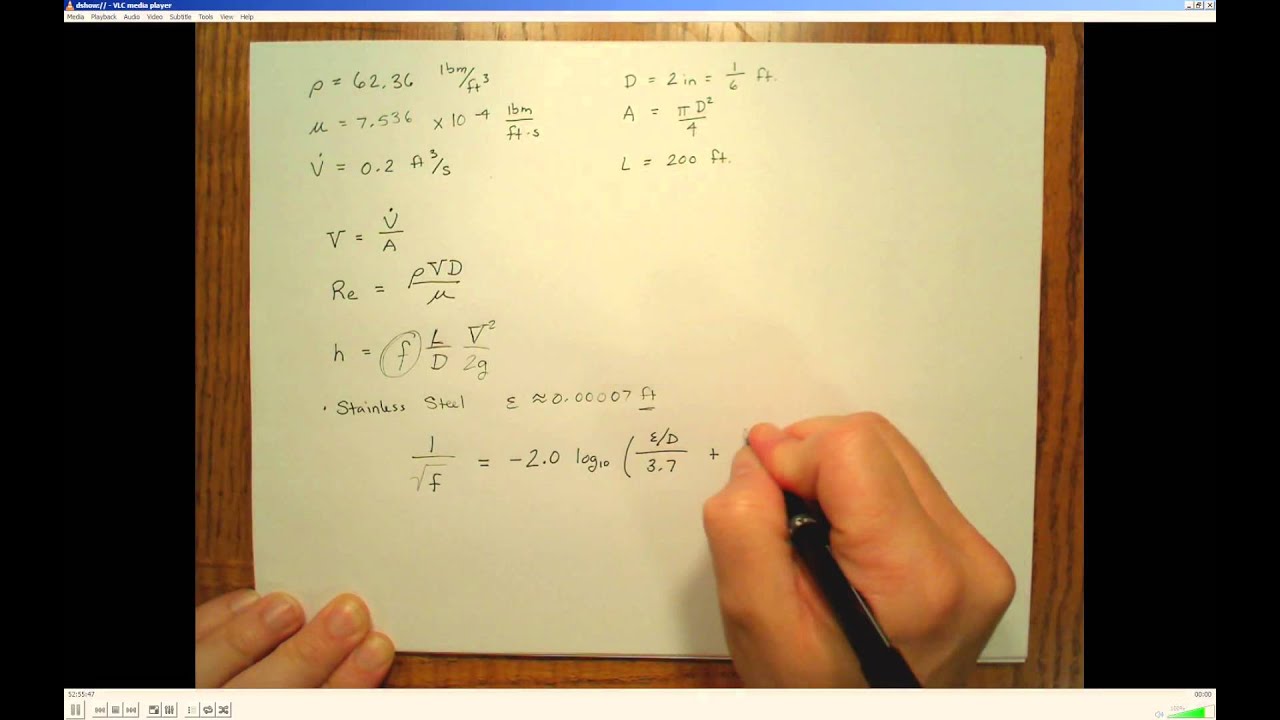 dshow:// - VLC media player
Media Playback Audio Video Subtitle Tools View Help
ρ = 62.36 lbm/ft³
D = 2 in = 1/6 ft.
μ = 7.536 x 10⁻⁴ lbm/ft·s
A = πD²/4
V̇ = 0.2 ft³/s
L = 200 ft.
V = V̇/A
Re = ρVD/μ
h = f L/D V²/2g
· Stainless Steel ε ≈ 0.00007 ft
1/√f = -2.0 log₁₀ (ε/D/3.7 +
52:55:47
00:00
100%